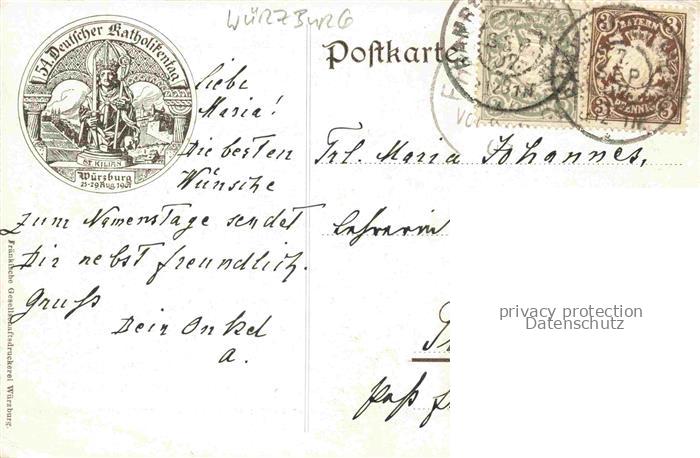 WÜRZBURG
54. Deutscher Katholikentag
ST. KILIAN
Würzburg
25-29 Aug. 1907
Postkarte
BAYERN
3 3
PFENNIG
Liebe
Maria!
Die besten
Wünsche
zum Namenstage sendet
Dir nebst freundlich.
Gruß
Dein Onkel
A.
Frl. Maria Johannes,
Lehrerin
Post
Fränkische Gesellschaftsdruckerei Würzburg.
privacy protection
Datenschutz